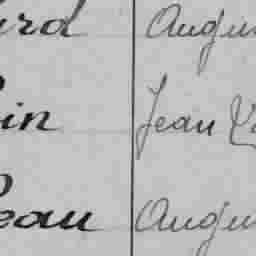 ard Augu
in Jean
eau Augu